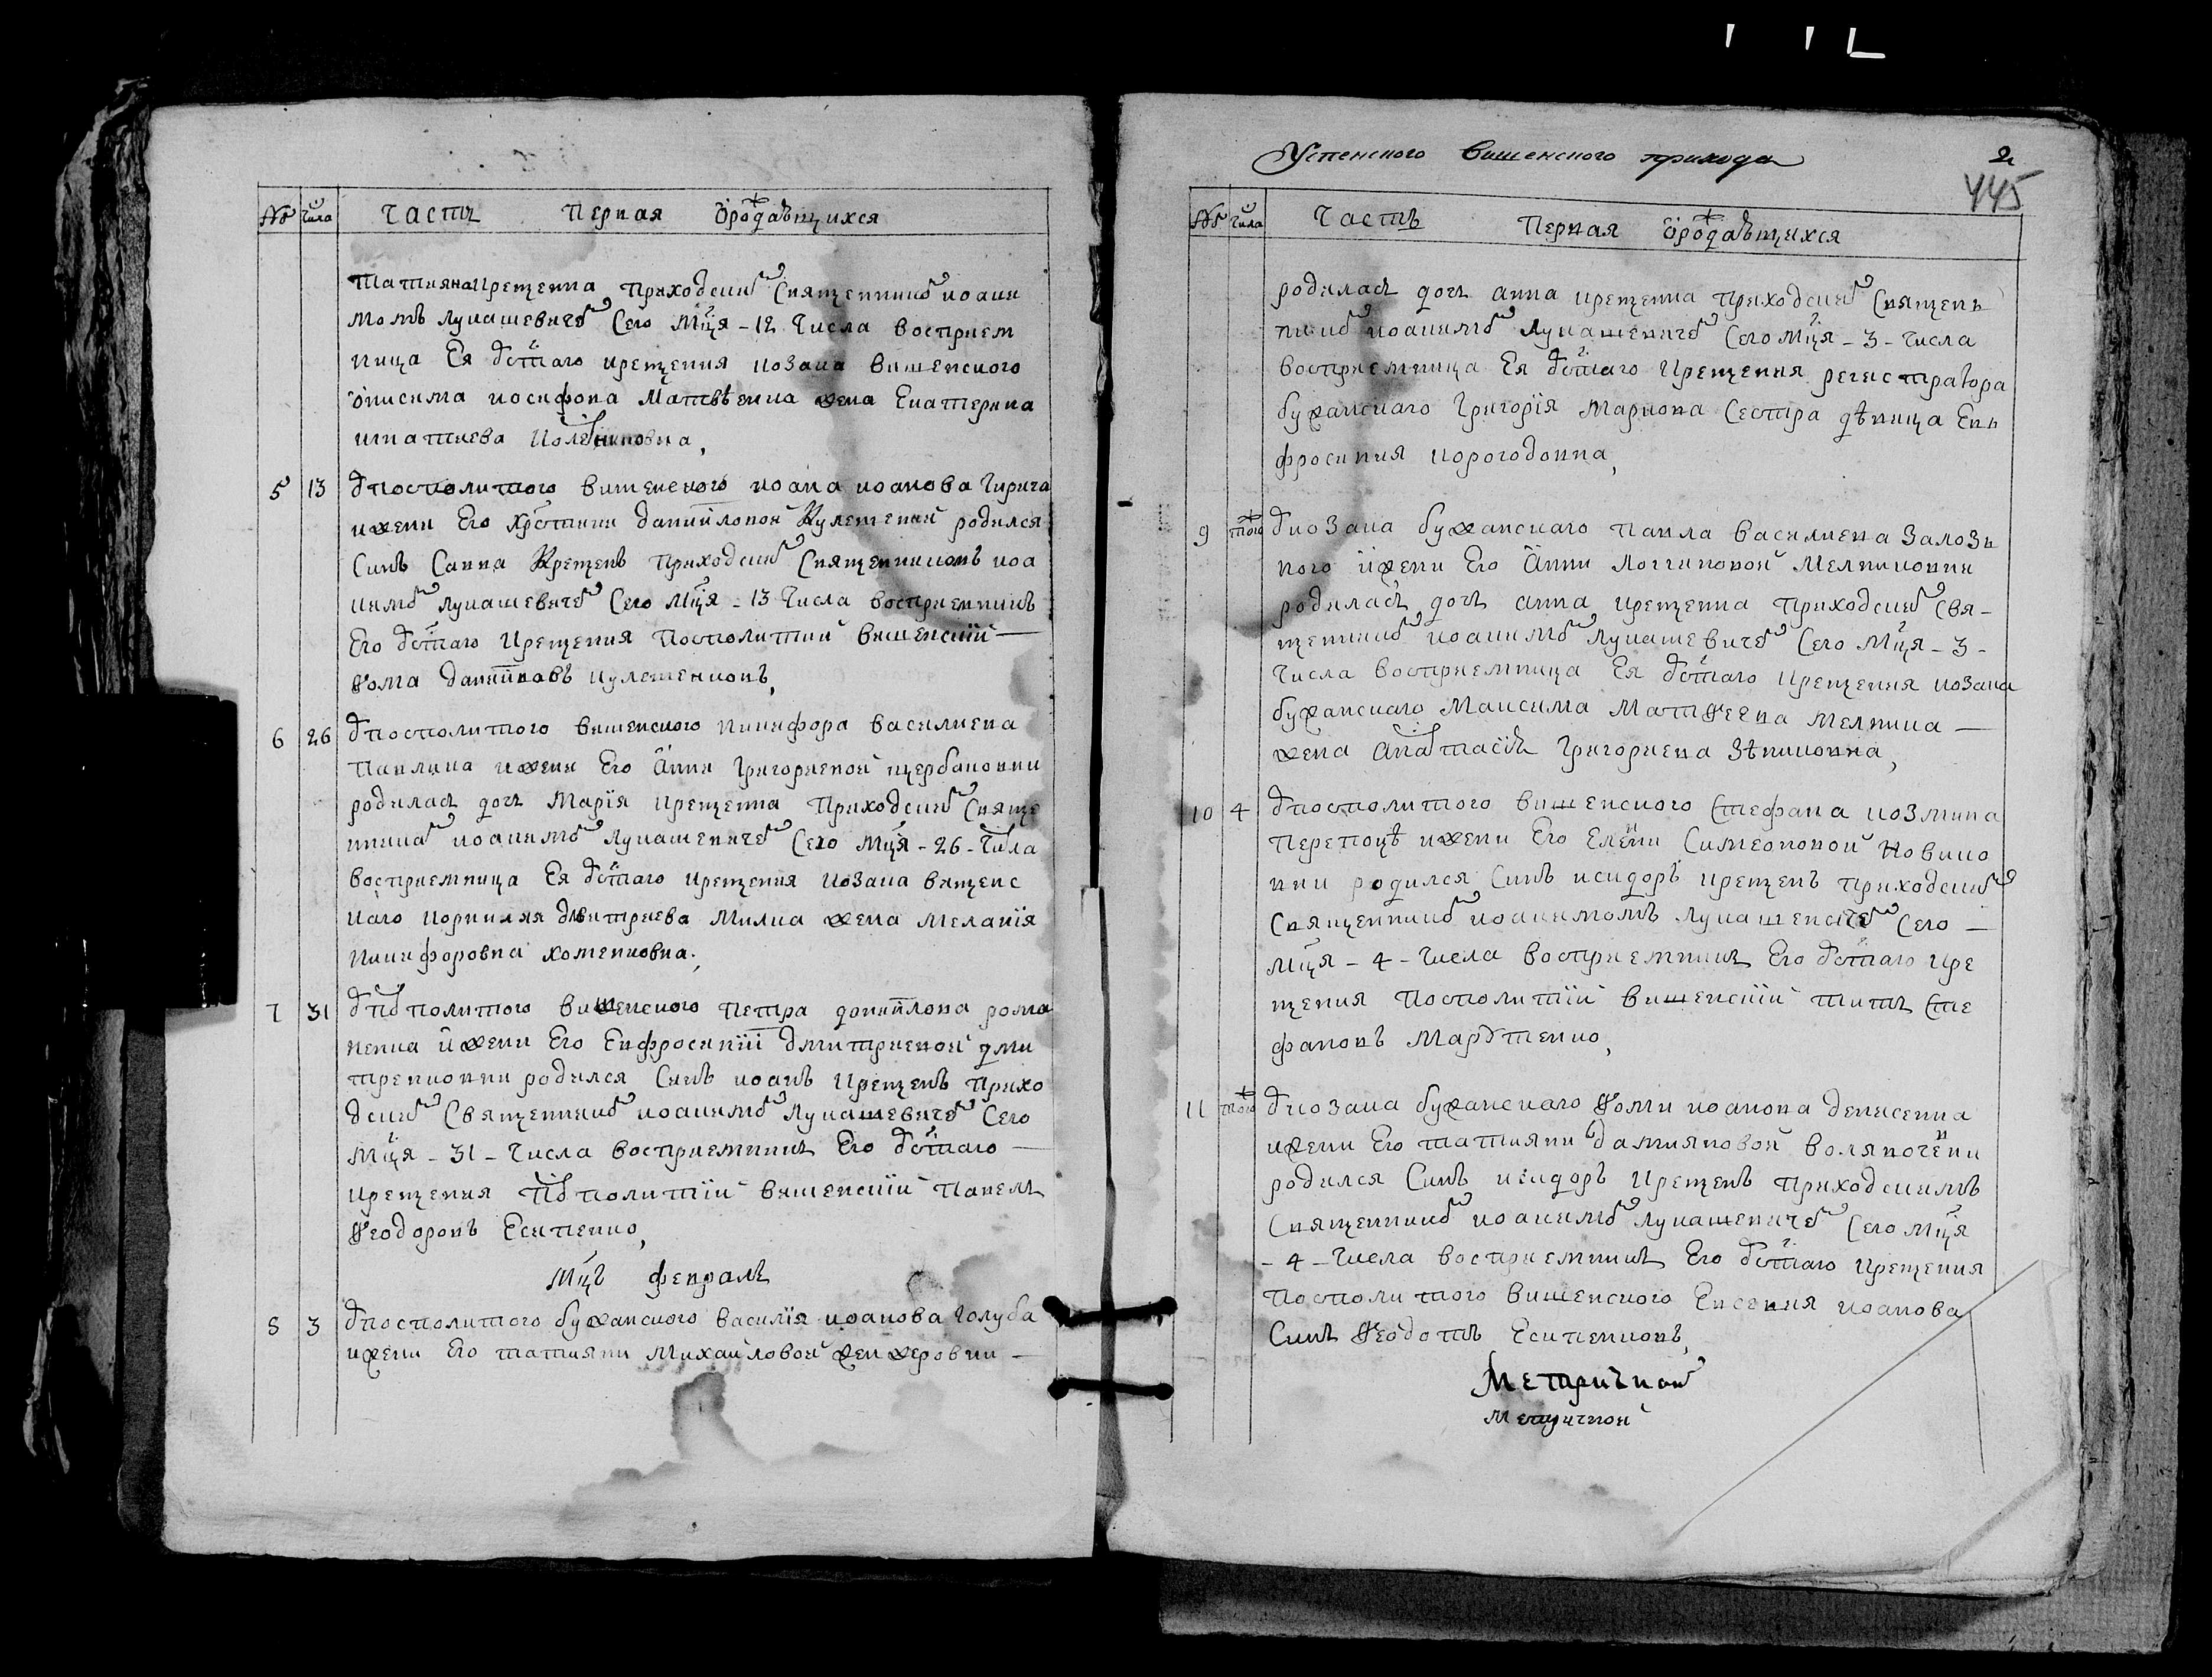 № Числа Часть Первая о родившихся
Татияна крещенна приходским священником иоаки
момъ лукашевичем сего мця - 12 числа восприем
ница Ея от стаго крещения козака вишенского
онисима иосифова Матвѣенка жена Екатерина
игнатиева
5 13 У посполитого вишенского иоана иоанова Гирича
и жени Его Христини даниiловой Кулешевни родился
Синъ Савва Крещенъ приходским священникомъ иоа
кимом лукашевичем сего мця - 13 числа восприемникъ
Его от стаго крещения посполитий вишенский
Ѳома даниiловъ кулешенковъ,
6 26 У посполитого вишенского никифора василиева
Павлика и жени Его Анни Григориевой щербаковни
родилась дочь Марiя крещенна приходским свяще
нником иоакимом лукашевичем сего мця - 26 - числа
восприемница Ея от стаго крещения козака вишенс
каго корнилия дмитриева Милка жена Меланiя
никифоровна хоменковна,
7 31 У посполитого вишенского Петра даниiлова рома
ненка и жени Его Евфросинiи дмитриевой дми
тренковни родился Синъ иоанъ крещенъ прихо
дским священником иоакимом лукашевичем сего
мця - 31 - числа восприемникъ Его от стаго
крещения посполитiй вишенскiй Павелъ
Ѳеодоровъ Есипенко,
Мцъ февраль
8 3 У посполитого бужанского василiя иоанова голуба
и жени Его татияни Михайловой женжеровни
Успенского вишенского прихода 2
445
№ Числа Часть Первая о родившихся
родилась дочь анна крещенна приходским священ
ником иоакимом лукашевичем сего мця - 3 - числа
восприемница Ея от стаго крещения регистратора
бужанскаго Григорiя Маркова сестра дѣвица Ев
фросиния
9 того У козака бужанскаго павла василиева Залозн
ного и жени Его Анни Логгиновой Мелниковни
родилась дочь анна крещенна приходским свя-
щенником иоакимом лукашевичем сего мця - 3 -
числа восприемница Ея от стаго крещения козака
бужанскаго Максима Матѳеева мелника
жена Анастасiя Григориева Зѣнковна,
10 4 У посполитого вишенского Стефана козмина
Перепоцѣ и жени Его Елени Симеоновой Новико
вни родился Синъ исидоръ крещенъ приходским
священником иоакимомъ лукашевичем сего
мця - 4 - числа восприемникъ Его от стаго кре
щения посполитiй вишенскiй титъ Сте
фановъ Мартенко,
11 того У козака бужанскаго Ѳоми иоанова денисенка
и жени Его татияни дамияновой
родился Синъ исидоръ крещенъ приходскимъ
священником иоакимом лукашевичем сего мця
- 4 - числа восприемникъ Его от стаго крещения
посполитого вишенского Евсевия иоанова
Синъ Ѳеодотъ Есипенковъ,
Метричной
Метричной